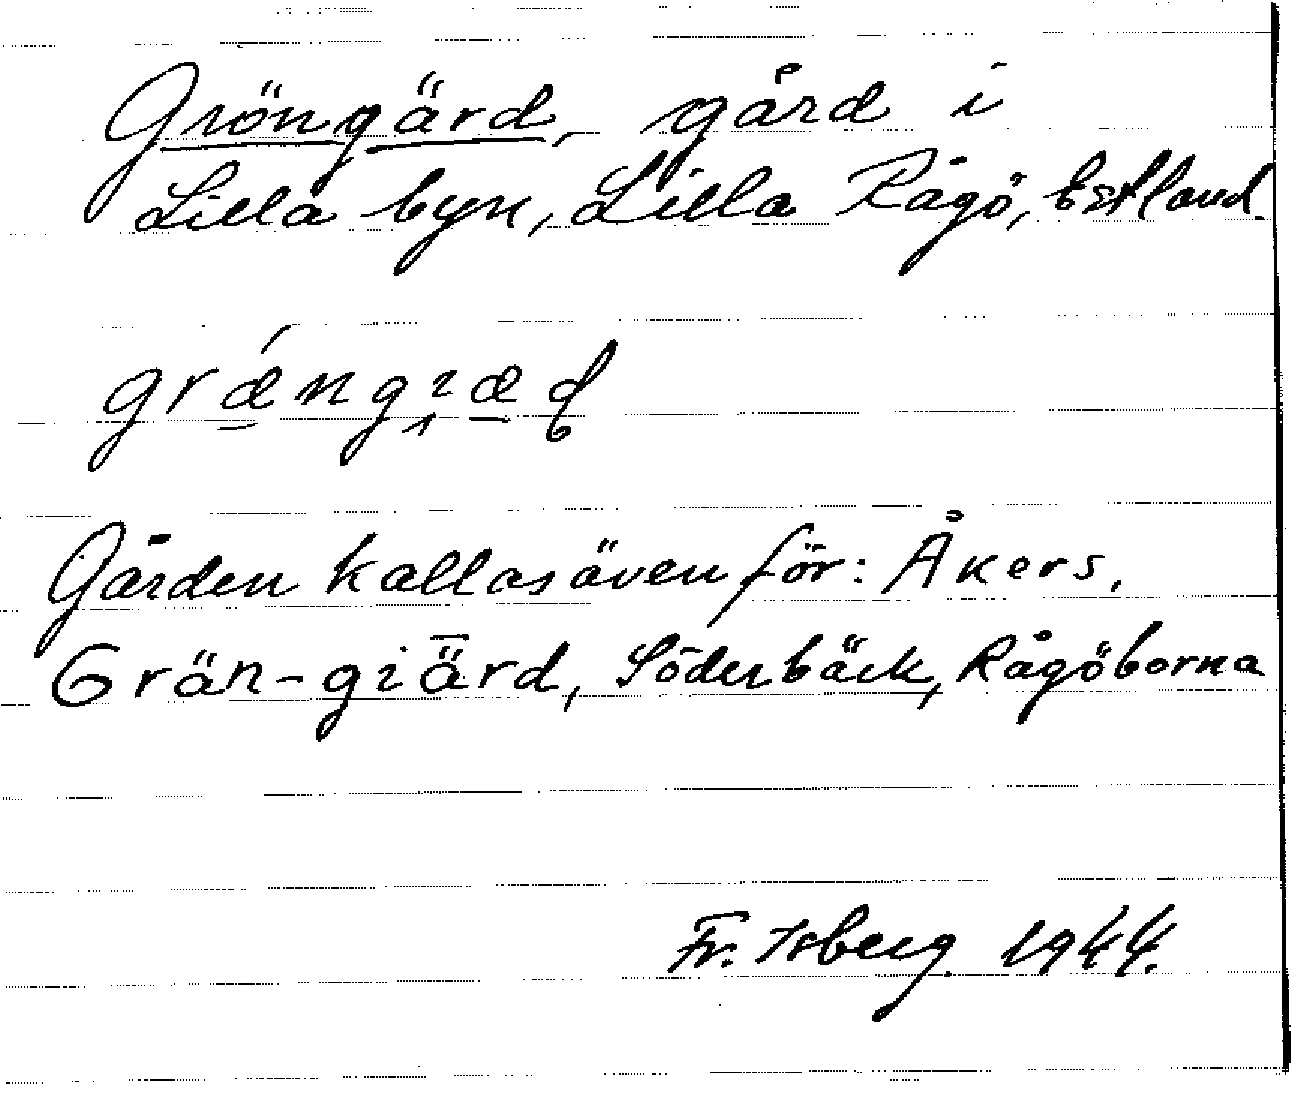 Gröngärd, gård i
Lilla byn, Lilla Rågö, Estland.
grǽngɹæɖ
Gården kallas även för: Åkers,
Grän-giǟrd, Söderbäck, Rågöborna
Fr. Isberg 1944.